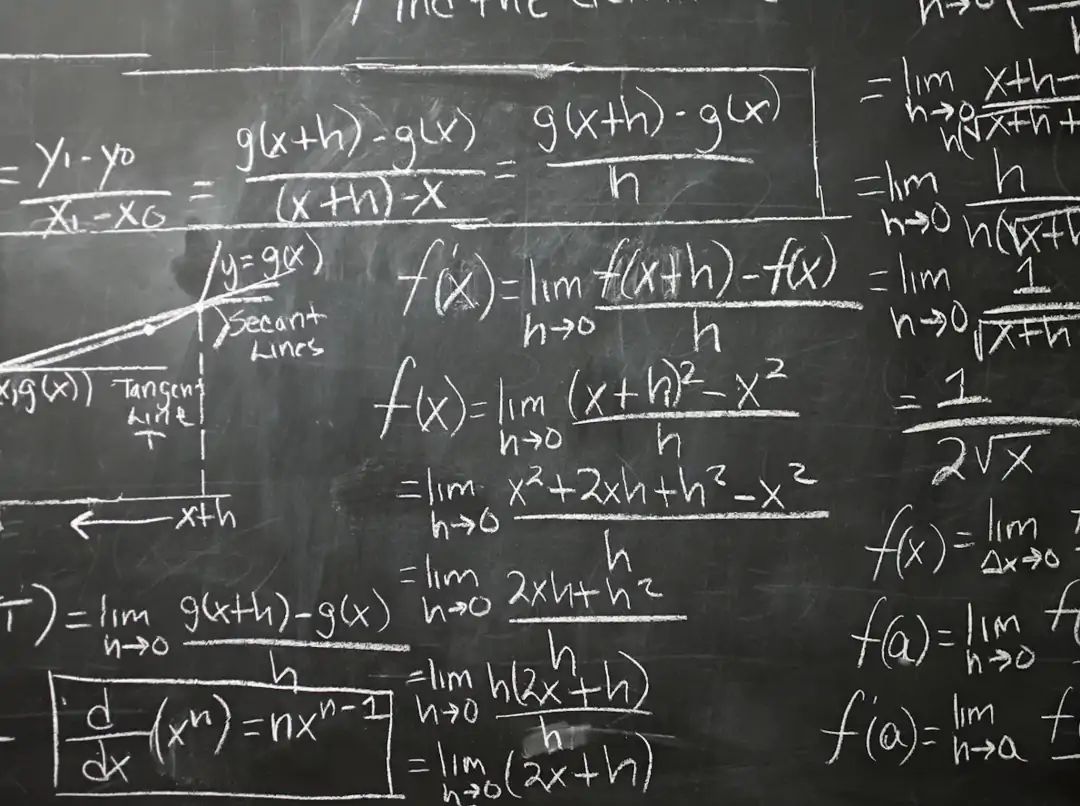 Find the
= y₁ - y₀ / x₁ - x₀ = g(x+h) - g(x) / (x+h) - x = g(x+h) - g(x) / h
y = g(x)
Secant
Lines
x, g(x))
Tangent
Line
T
x+h
T) = lim h→0 g(x+h) - g(x) / h
d/dx (xⁿ) = nxⁿ⁻¹
f'(x) = lim h→0 f(x+h) - f(x) / h
f(x) = lim h→0 (x+h)² - x² / h
= lim h→0 x² + 2xh + h² - x² / h
= lim h→0 2xh + h² / h
= lim h→0 h(2x+h) / h
= lim h→0 (2x+h)
h→0 (
h
= lim h→0 x+h- / h(√x+h +
= lim h→0 h / h(√x+h
= lim h→0 1 / √x+h
= 1 / 2√x
f(x) = lim Δx→0
f(a) = lim h→0 f
f'(a) = lim h→a f